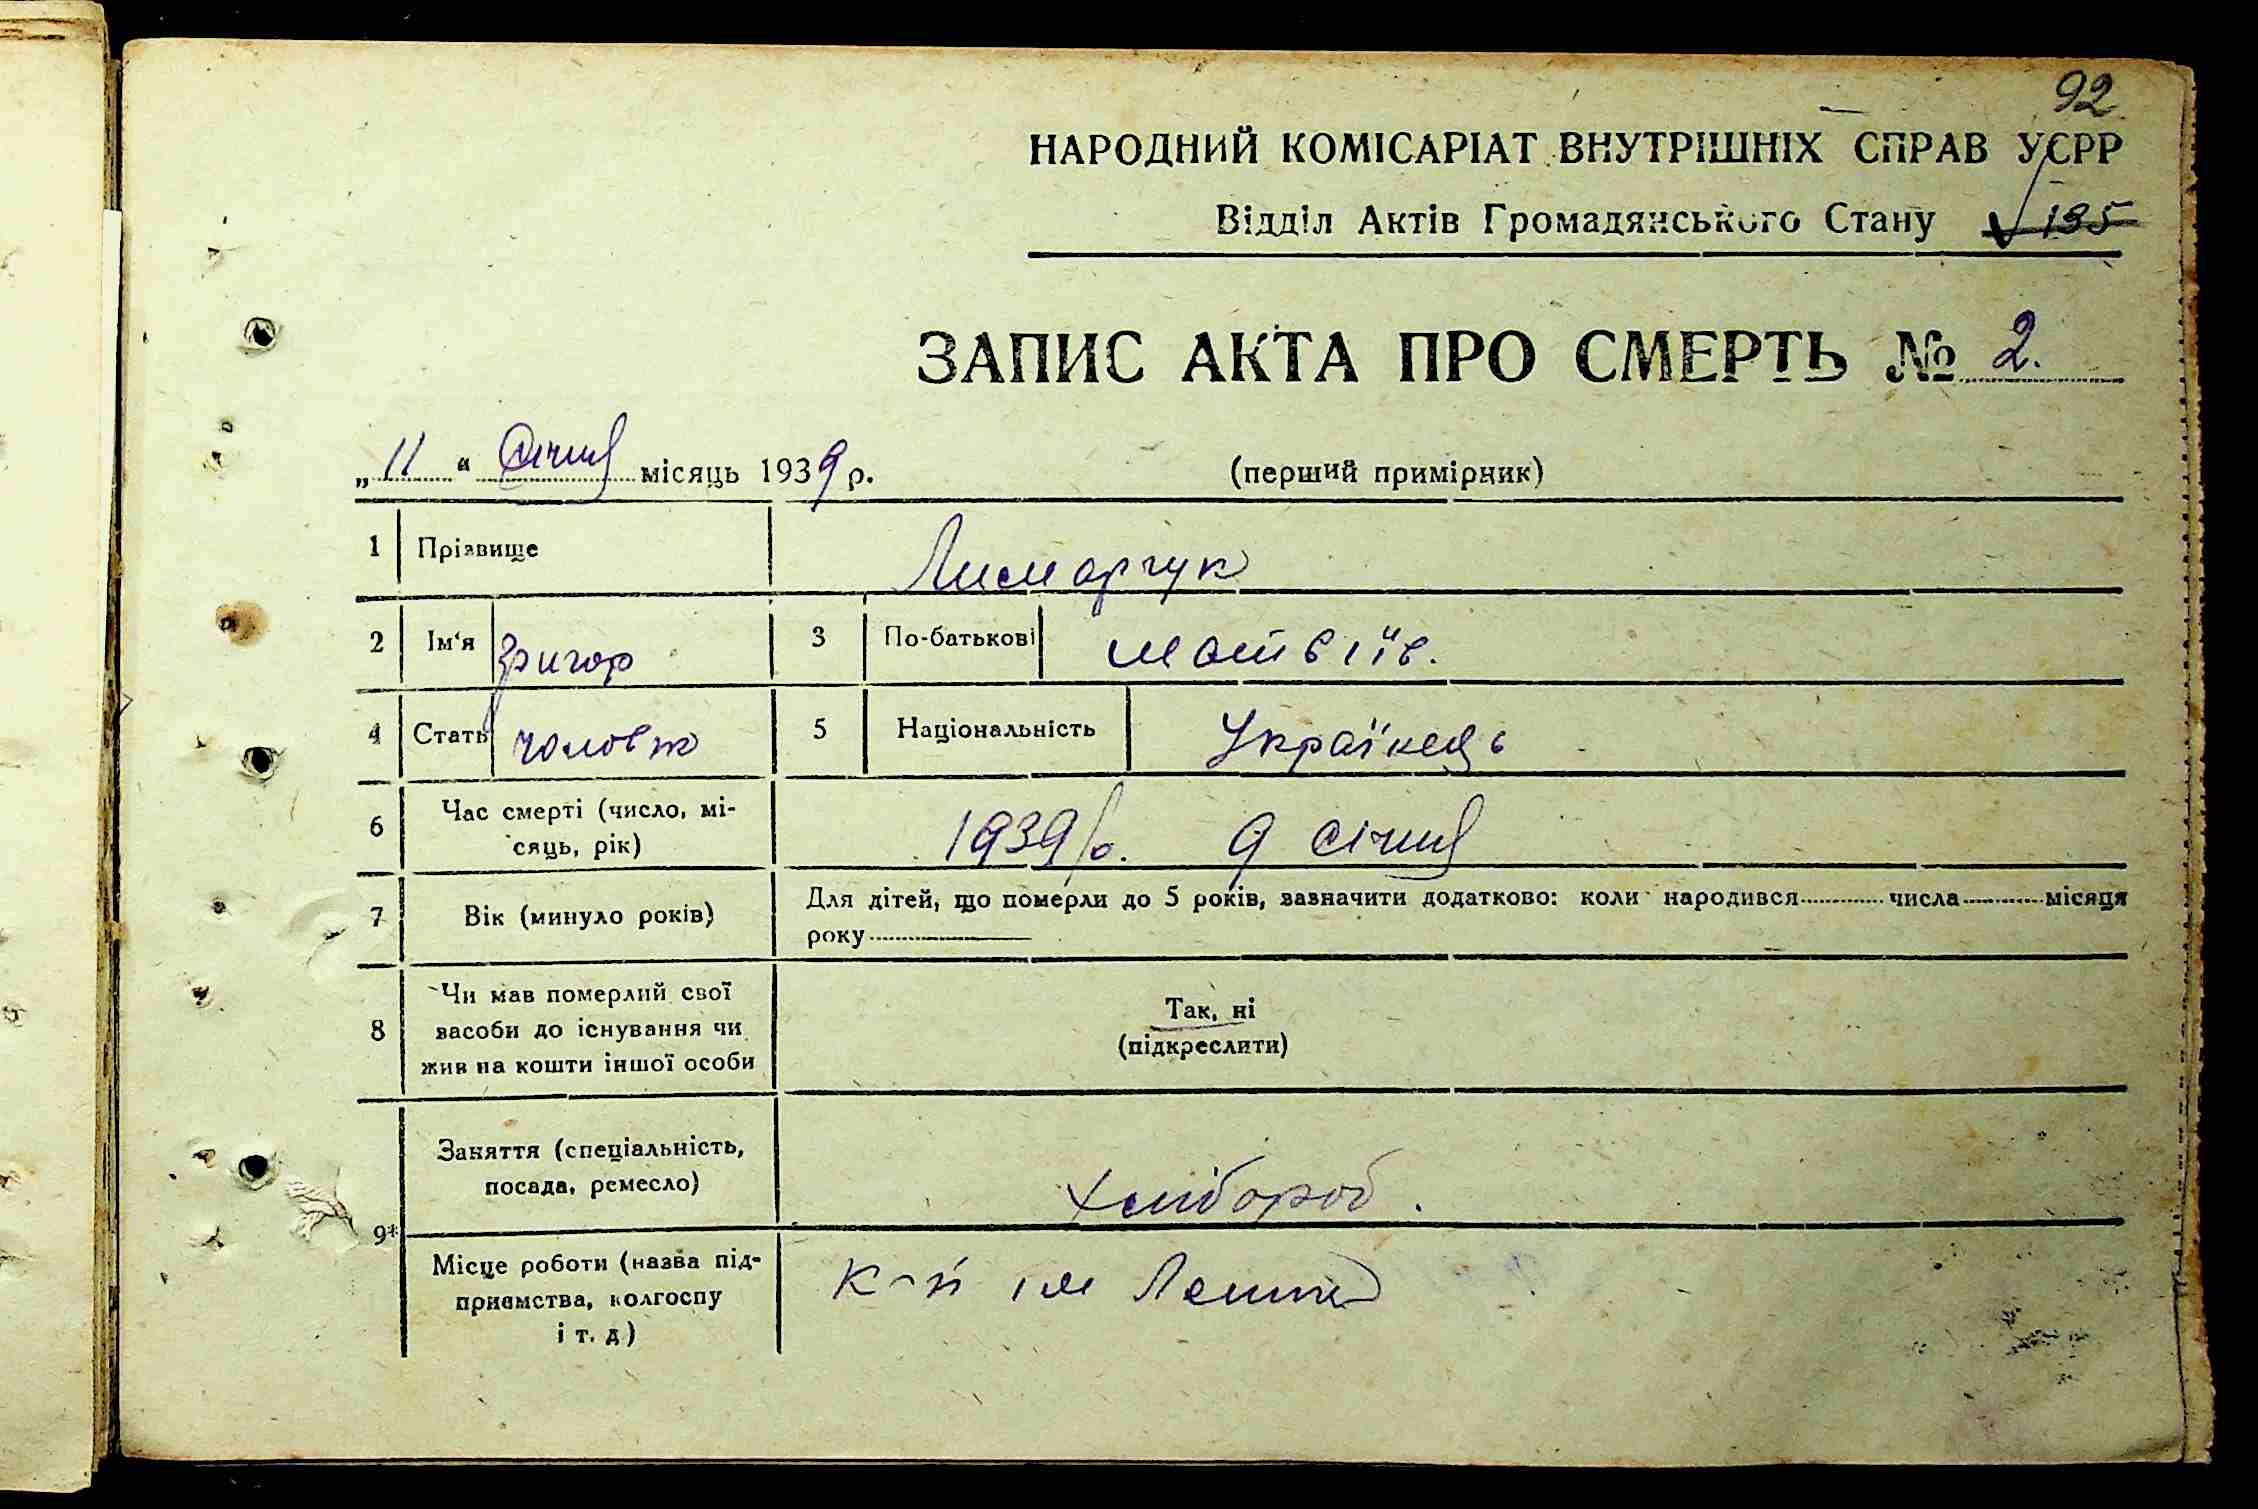 92
НАРОДНИЙ КОМІСАРІАТ ВНУТРІШНІХ СПРАВ УСРР
Відділ Актів Громадянського Стану 135
ЗАПИС АКТА ПРО СМЕРТЬ № 2.
„11“ Січня місяць 1939 р. (перший примірник)
1 Прізвище Лимарчук
2 Ім‘я Григор 3 По-батькові Матвіїв.
4 Стать чоловік 5 Національність Українець
6 Час смерті (число, мі-
сяць, рік) 1939 р. 9 Січня
7 Вік (минуло років) Для дітей, що померли до 5 років, зазначити додатково: коли народився числа місяця
року
8 Чи мав померлий свої
засоби до існування чи
жив на кошти іншої особи
Так, ні
(підкреслити)
9*
Заняття (спеціальність,
посада, ремесло) Хлібороб.
Місце роботи (назва під-
приємства, колгоспу
і т. д) К-п ім Леніна